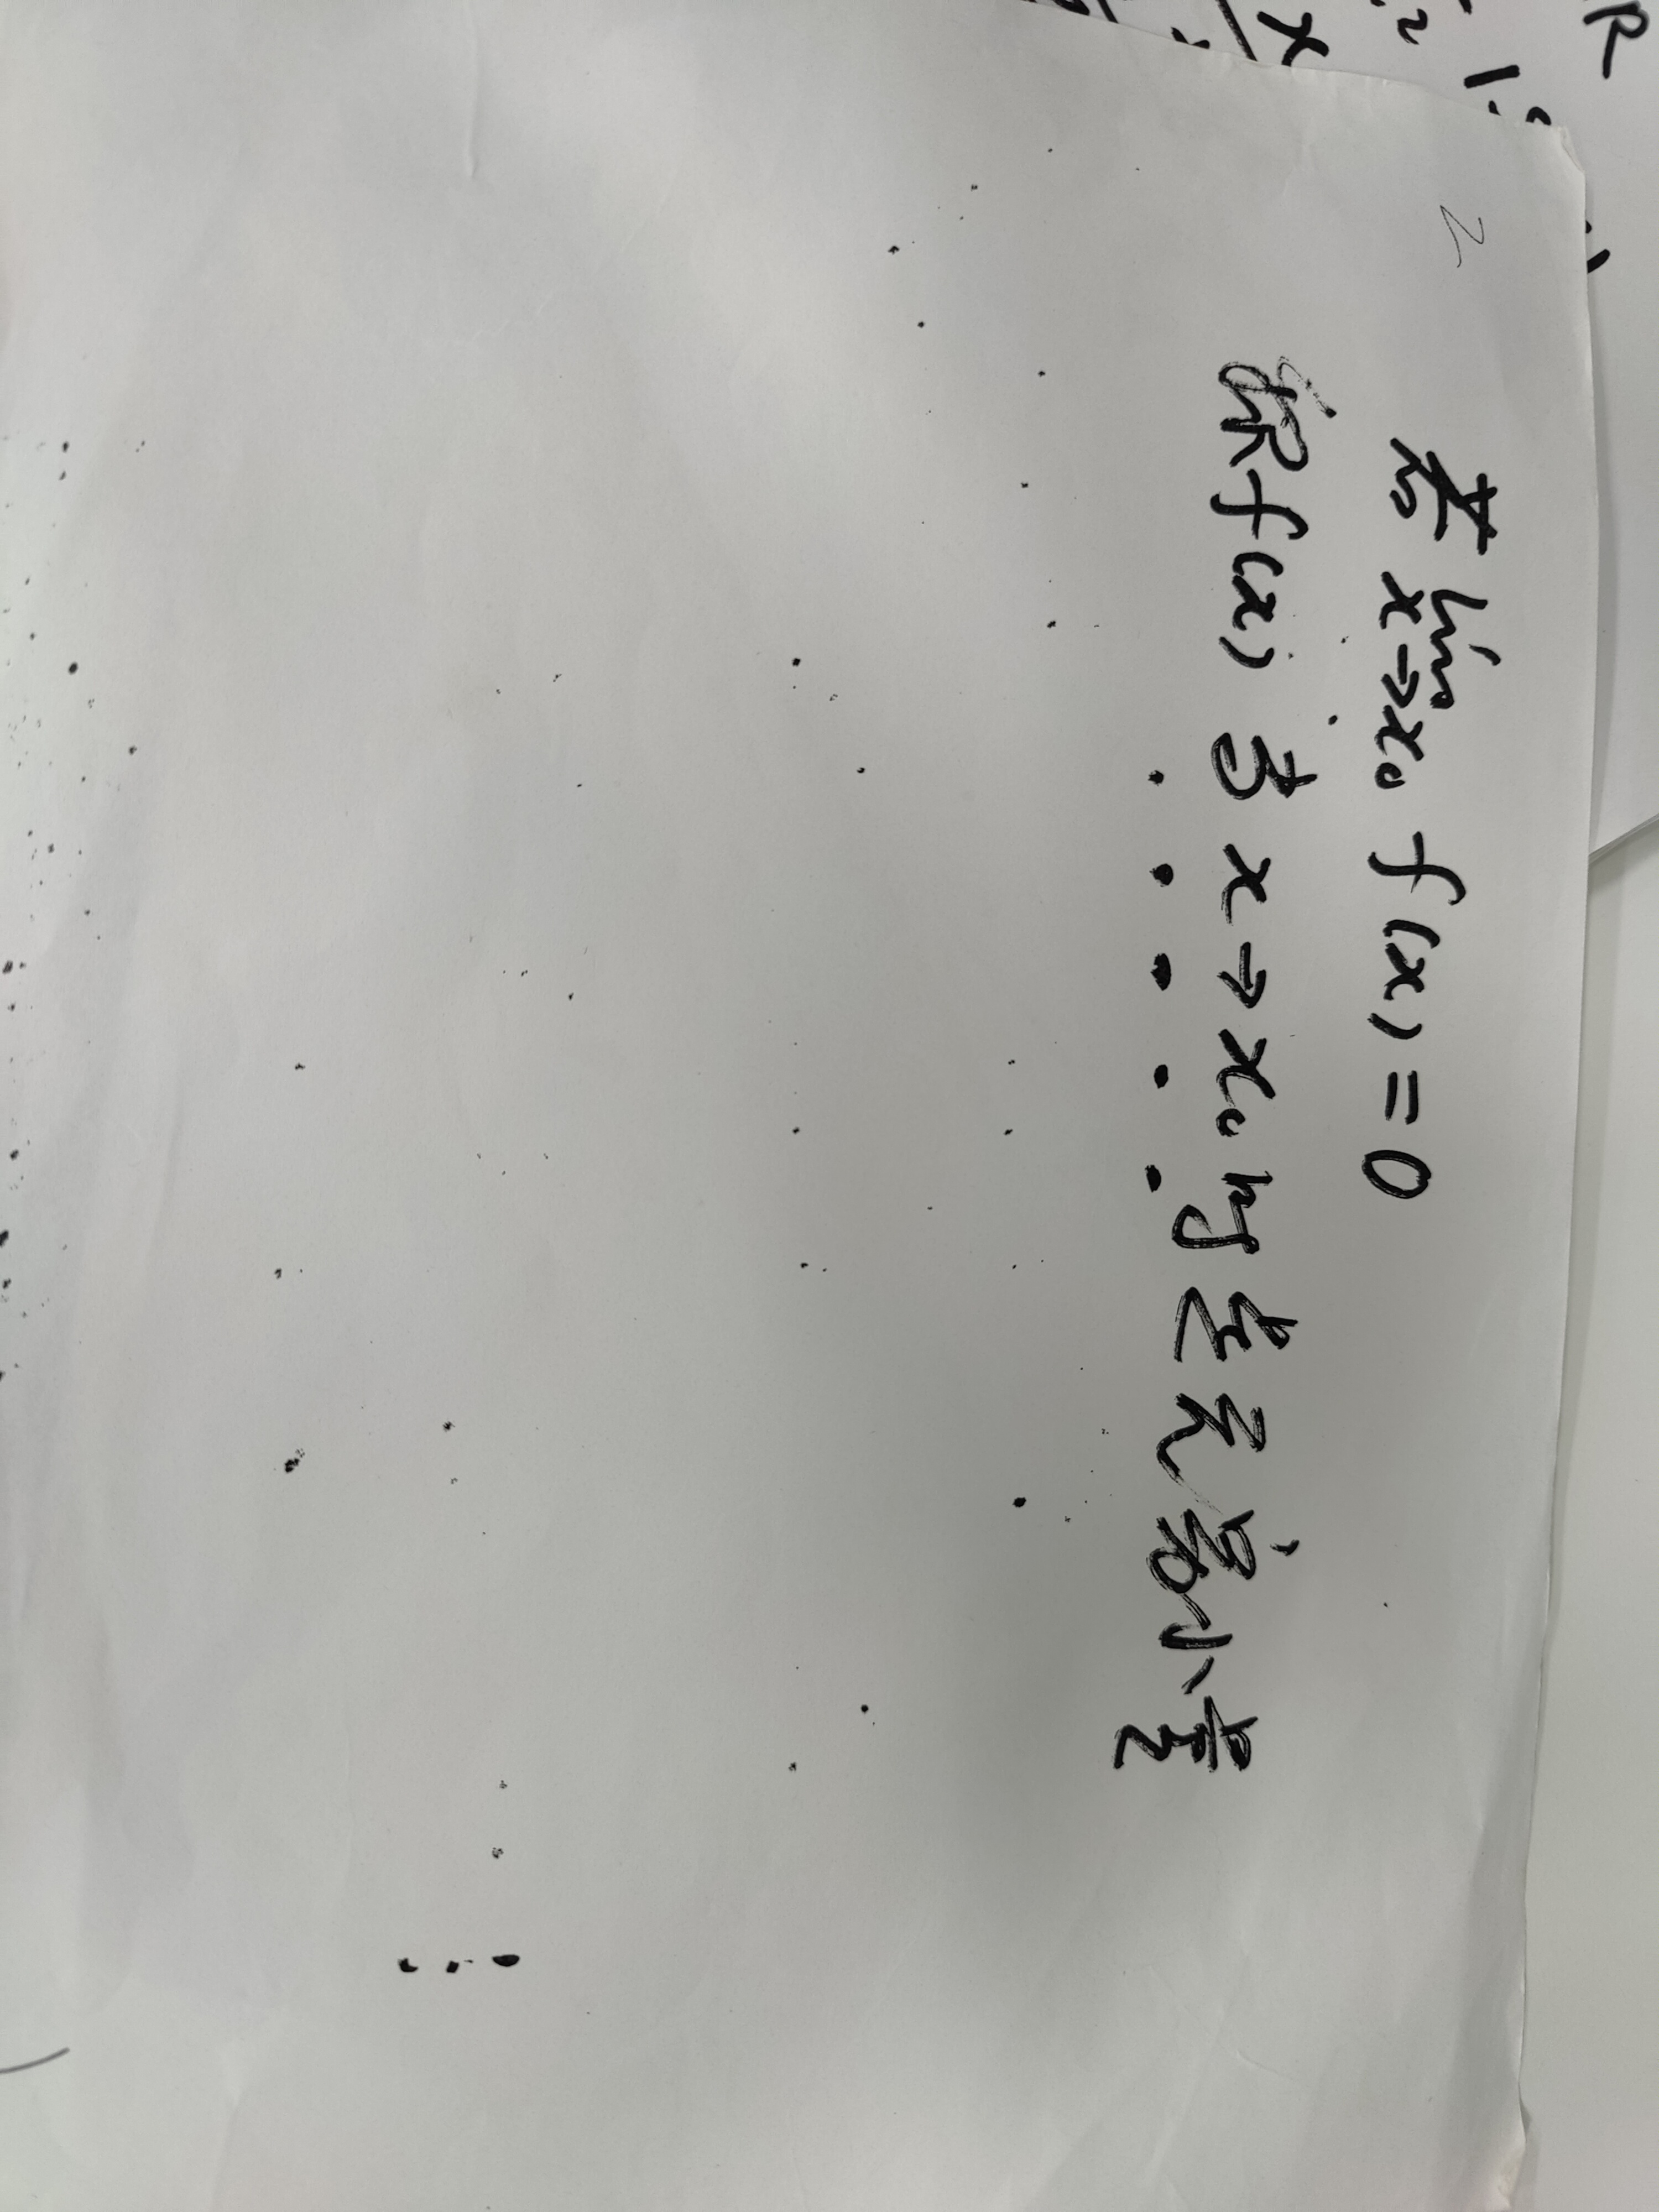 2
若 lim x→x₀ f(x) = 0
称 f(x) 当 x→x₀ 时是无穷小量